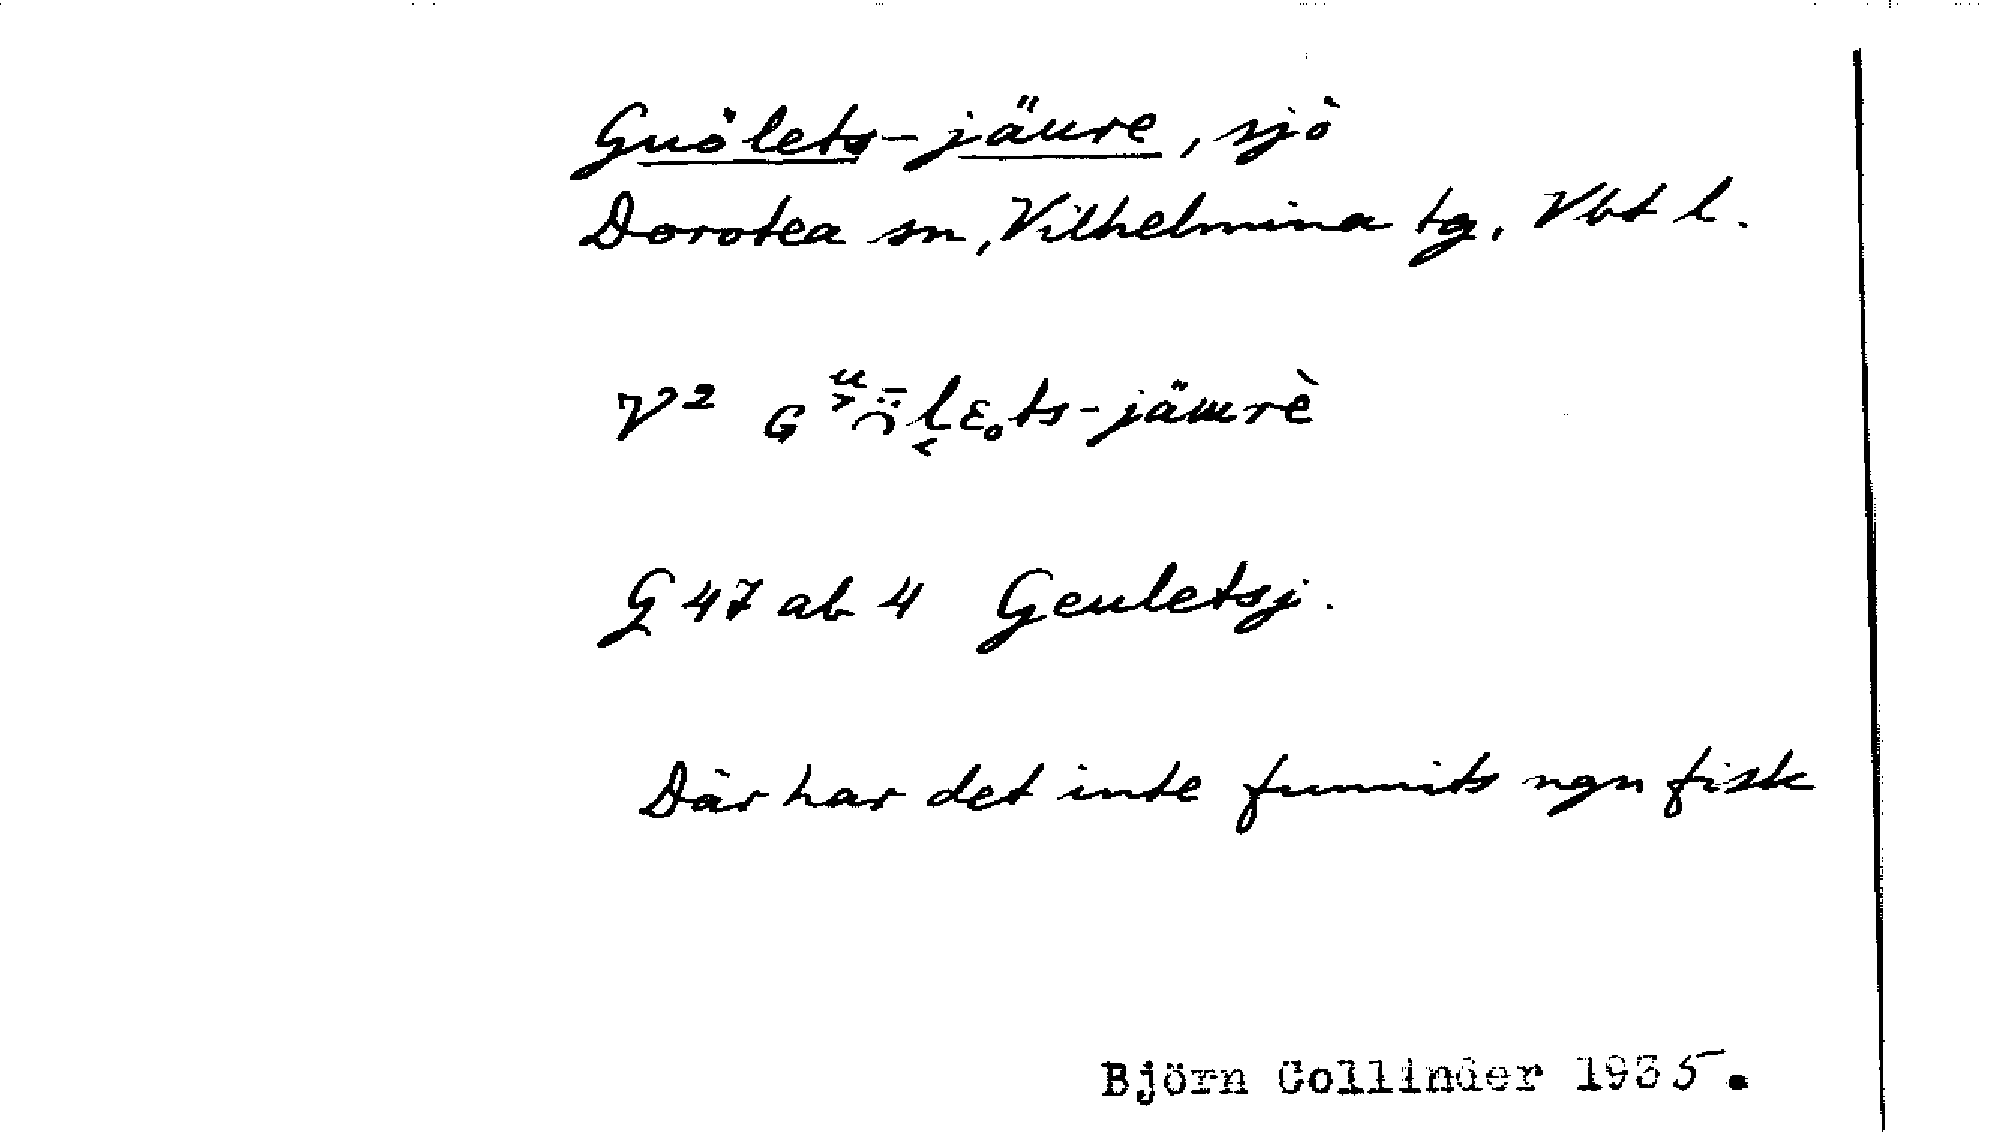 Guölets-jäure, sjö
Dorotea sn, Vilhelmina tg. Vbt l.
V²
G 47 ab 4 Geuletsj.
Där har det inte funnits ngn fisk
Björn Collinder 1935.